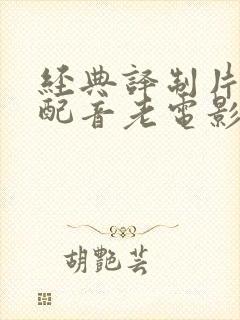 經典譯制片
配音老電影
胡艷芸